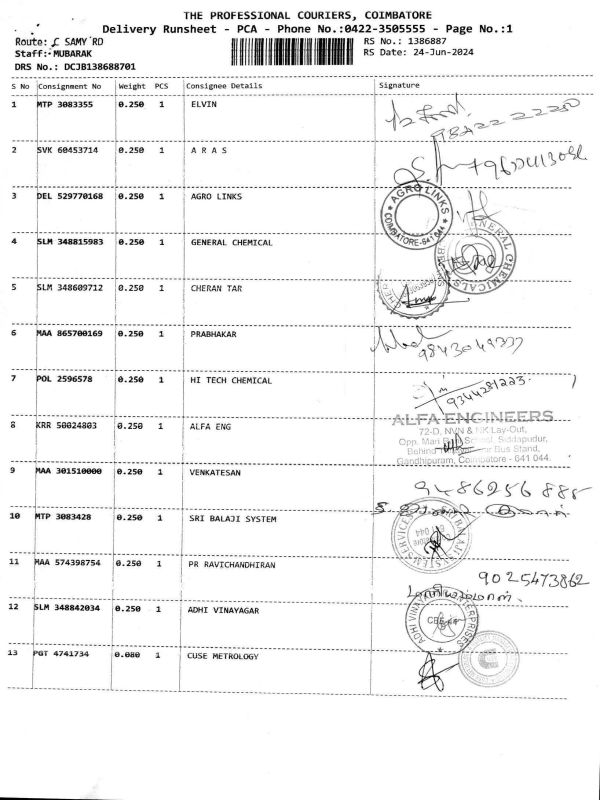 THE PROFESSIONAL COURIERS, COIMBATORE
Delivery Runsheet - PCA - Phone No.:0422-3505555 - Page No.:1
Route: C SAMY RD
RS No.: 1386887
Staff: MUBARAK
RS Date: 24-Jun-2024
DRS No.: DCJB138688701
S No Consignment No Weight PCS Consignee Details Signature
1 MTP 3083355 0.250 1 ELVIN
2 SVK 60453714 0.250 1 A R A S
3 DEL 529770168 0.250 1 AGRO LINKS
AGRO LINKS
COIMBATORE-641 044
4 SLM 348815983 0.250 1 GENERAL CHEMICAL
GENERAL CHEMICALS
5 SLM 348609712 0.250 1 CHERAN TAR
6 MAA 865700169 0.250 1 PRABHAKAR
9843049377
7 POL 2596578 0.250 1 HI TECH CHEMICAL
9344281223
8 KRR 50024803 0.250 1 ALFA ENG
ALFA ENGINEERS
72-D, NVN & NK Lay-Out,
Opp. Mari School, Siddapudur,
Behind Bus Stand,
Gandhipuram, Coimbatore - 641 044.
9 MAA 301510000 0.250 1 VENKATESAN
9486256885
10 MTP 3083428 0.250 1 SRI BALAJI SYSTEM
SRI BALAJI SYSTEM SERVICES
11 MAA 574398754 0.250 1 PR RAVICHANDHIRAN
9025473862
12 SLM 348842034 0.250 1 ADHI VINAYAGAR
ADHI VINAYAGAR ENTERPRISES
13 PGT 4741734 0.080 1 CUSE METROLOGY